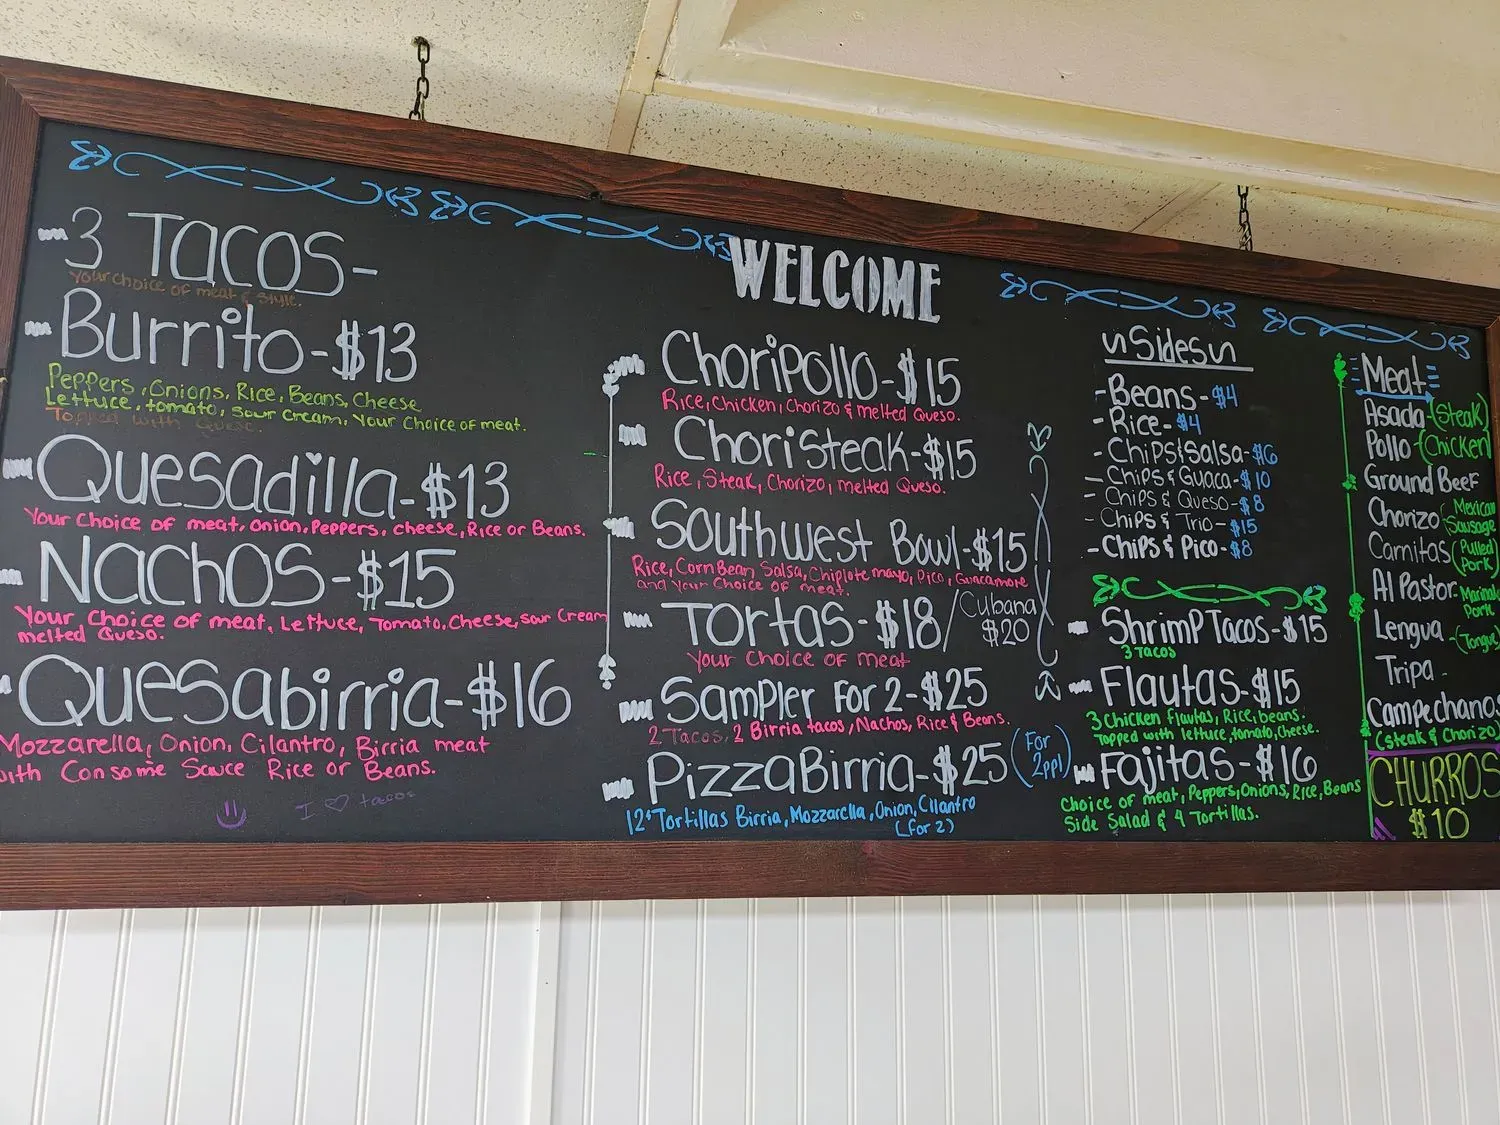 3 Tacos-
Your choice of meat & style.
Burrito-$13
Peppers, Onions, Rice, Beans, Cheese
Lettuce, tomato, sour cream, Your Choice of meat.
Topped with Queso.
Quesadilla-$13
Your Choice of meat, onion, Peppers, cheese, Rice or Beans.
Nachos-$15
Your Choice of meat, Lettuce, Tomato, Cheese, sour Cream
melted Queso.
Quesabirria-$16
Mozzarella, Onion, Cilantro, Birria meat
with Consome Sauce Rice or Beans.
I ♡ tacos
WELCOME
ChoriPollo-$15
Rice, Chicken, Chorizo & melted Queso.
ChoriSteak-$15
Rice, Steak, Chorizo, melted Queso.
Southwest Bowl-$15
Rice, Corn Bean Salsa, Chiplote mayo, Pico, Guacamore
and Your Choice of meat.
Tortas-$18/Cubana
$20
Your Choice of meat
Sampler For 2-$25
2 Tacos, 2 Birria tacos, Nachos, Rice & Beans.
PizzaBirria-$25 (For
2ppl)
12" Tortillas Birria, Mozzarella, Onion, Cilantro
(For 2)
Sides
-Beans-$4
-Rice-$4
-Chips & Salsa-$6
-Chips & Guaca-$10
-Chips & Queso-$8
-Chips & Trio-$15
-Chips & Pico-$8
Shrimp Tacos-$15
3 Tacos
Flautas-$15
3 Chicken flautas, Rice, beans.
Topped with lettuce, tomato, Cheese.
Fajitas-$16
Choice of meat, Peppers, Onions, Rice, Beans
Side Salad & 4 Tortillas.
Meat
Asada-(Steak)
Pollo-(Chicken
Ground Beef
Chorizo (Mexican
Sausage
Carnitas (Pulled
Pork)
Al Pastor-
Pork
Lengua-(Tongue)
Tripa-
Campechanos
(Steak & Chorizo)
CHURROS
$10